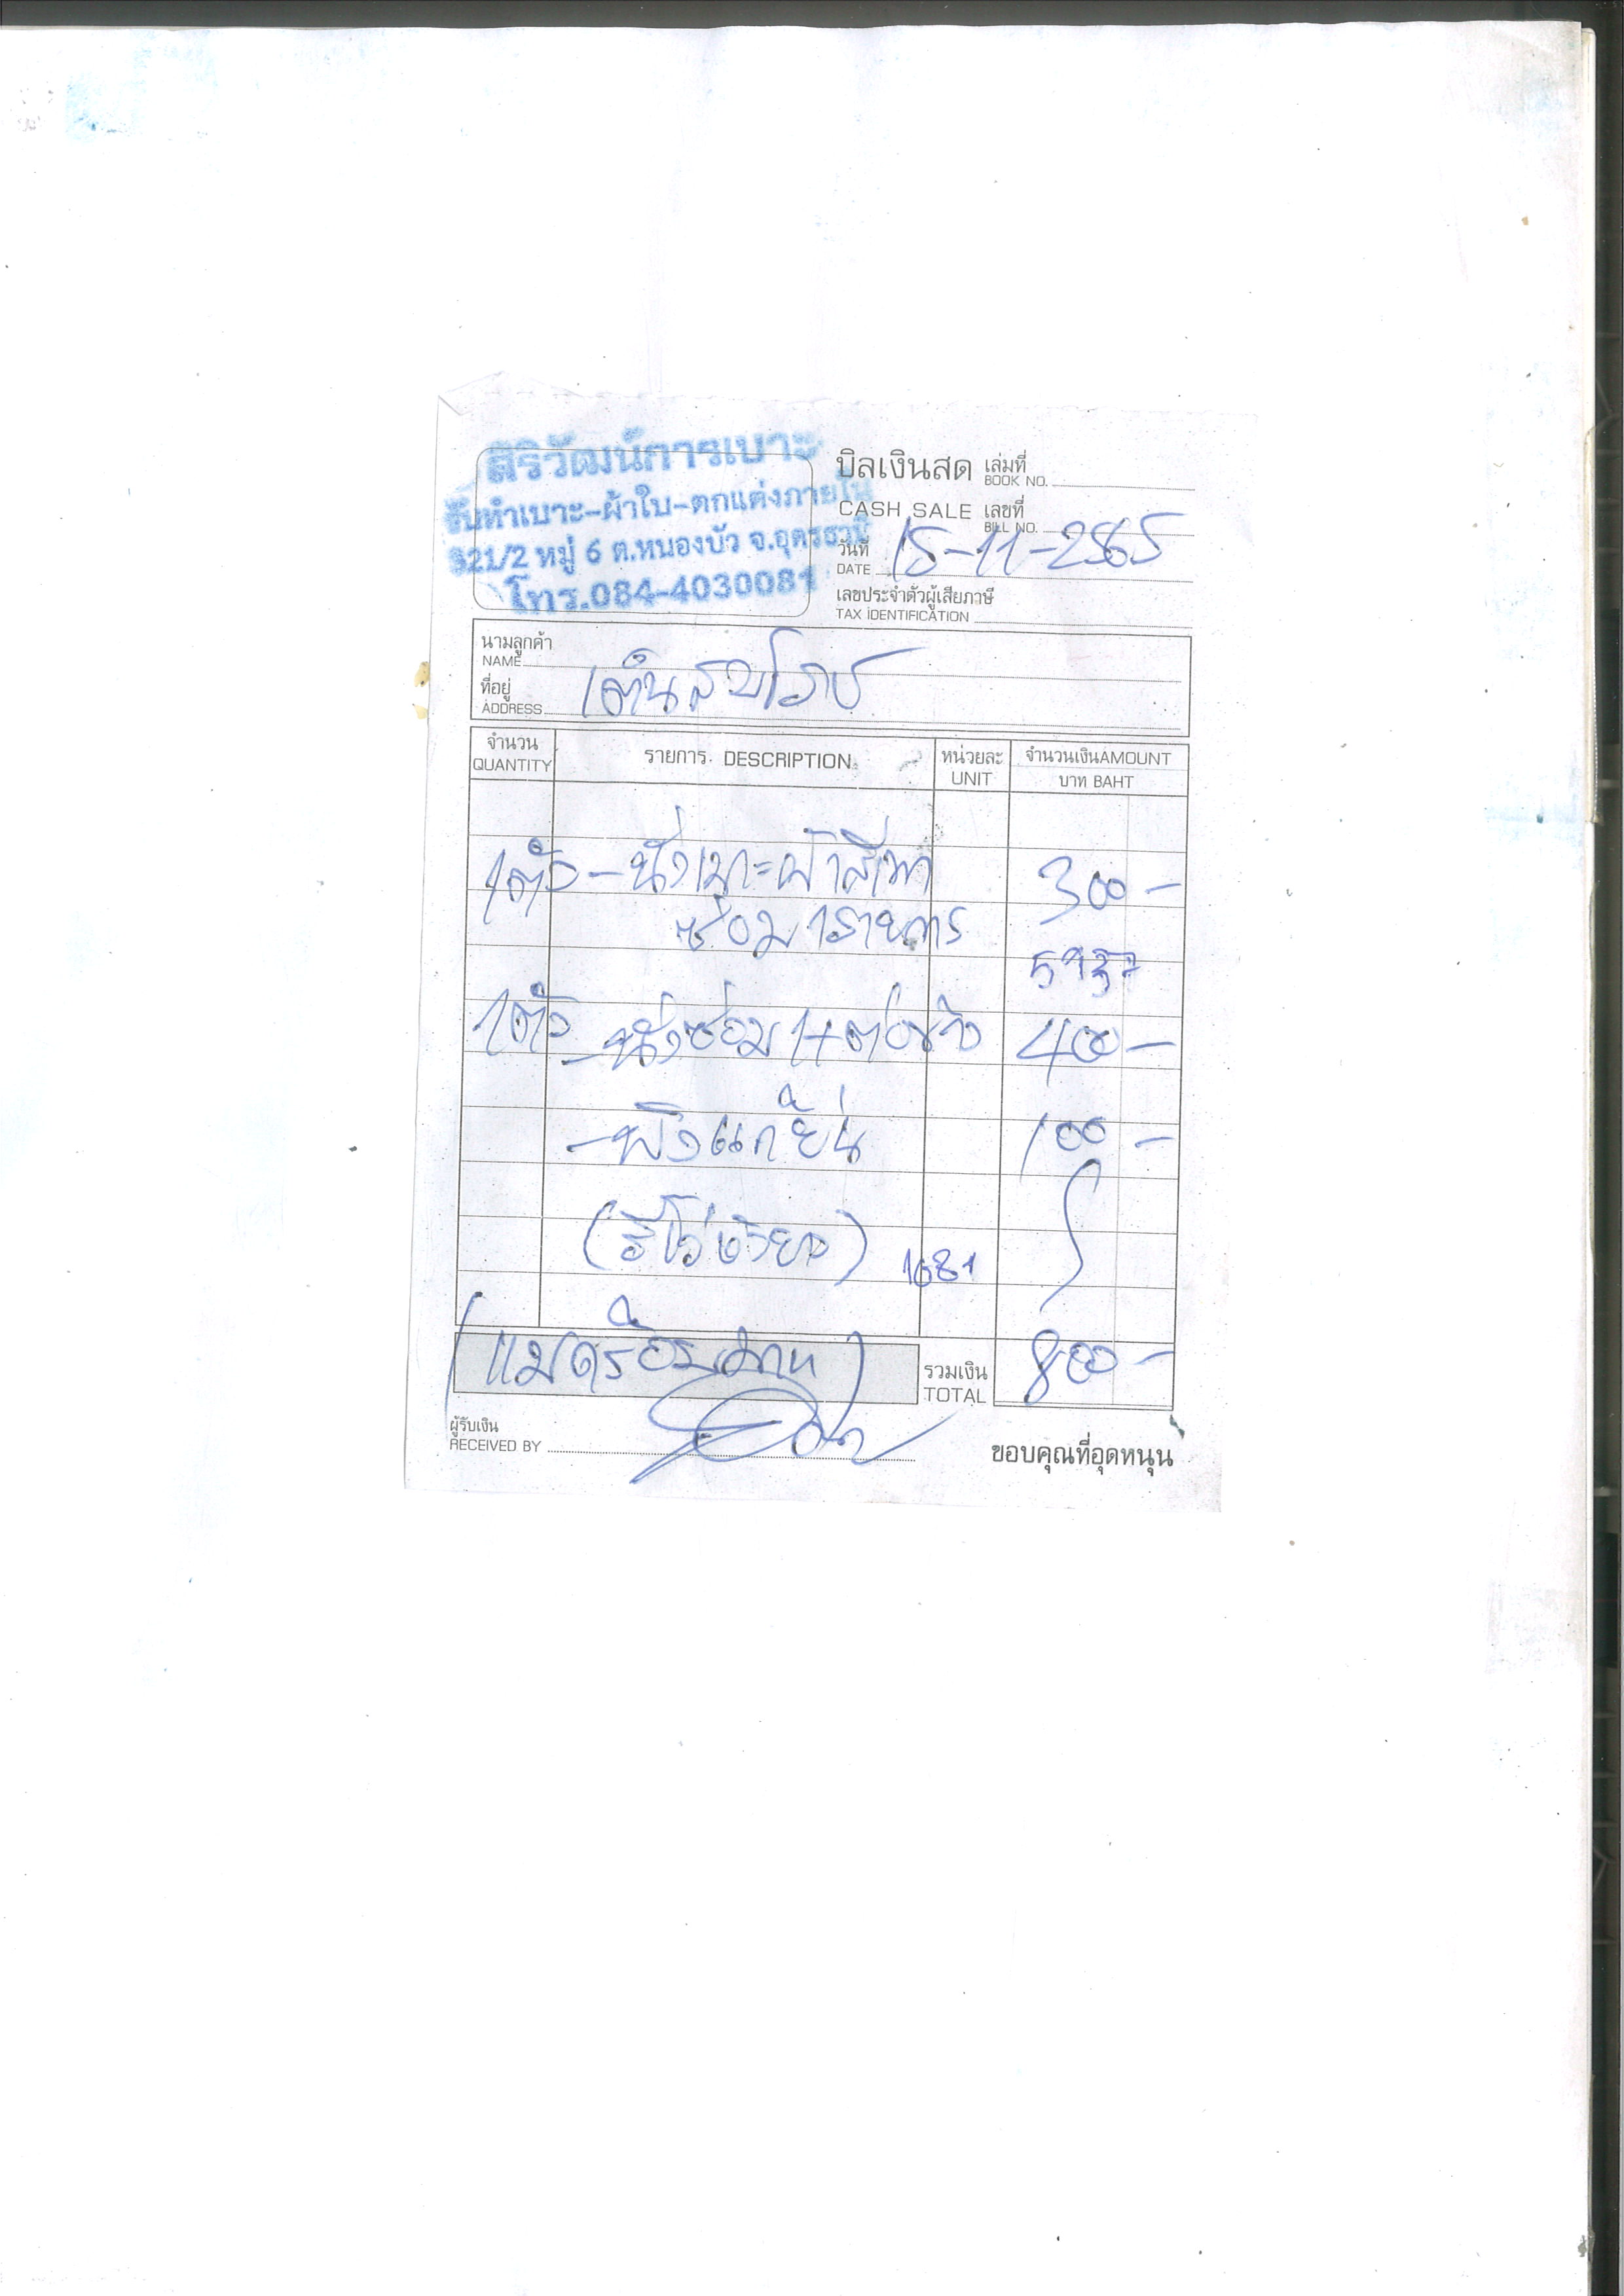 สิริวัฒน์การเบาะ
รับทำเบาะ-ผ้าใบ-ตกแต่งภายใน
321/2 หมู่ 6 ต.หนองบัว จ.อุดรธานี
โทร.084-4030081
บิลเงินสด เล่มที่
BOOK NO.
CASH SALE เลขที่
BILL NO.
วันที่ 15-11-2565
DATE
เลขประจำตัวผู้เสียภาษี
TAX IDENTIFICATION
นามลูกค้า
NAME
ที่อยู่
ADDRESS
จำนวน รายการ DESCRIPTION หน่วยละ จำนวนเงิน AMOUNT
QUANTITY UNIT บาท BAHT
1ตัว -นั่งเบาะผ้าสีเทา 300-
ซ่อม 1รายการ
5937
1ตัว -นั่งซ่อม 1+ต่อข้าง 400-
-พิงแก้ย่น 100-
1681
(แปดร้อยบาท) รวมเงิน 800-
TOTAL
ผู้รับเงิน
RECEIVED BY
ขอบคุณที่อุดหนุน